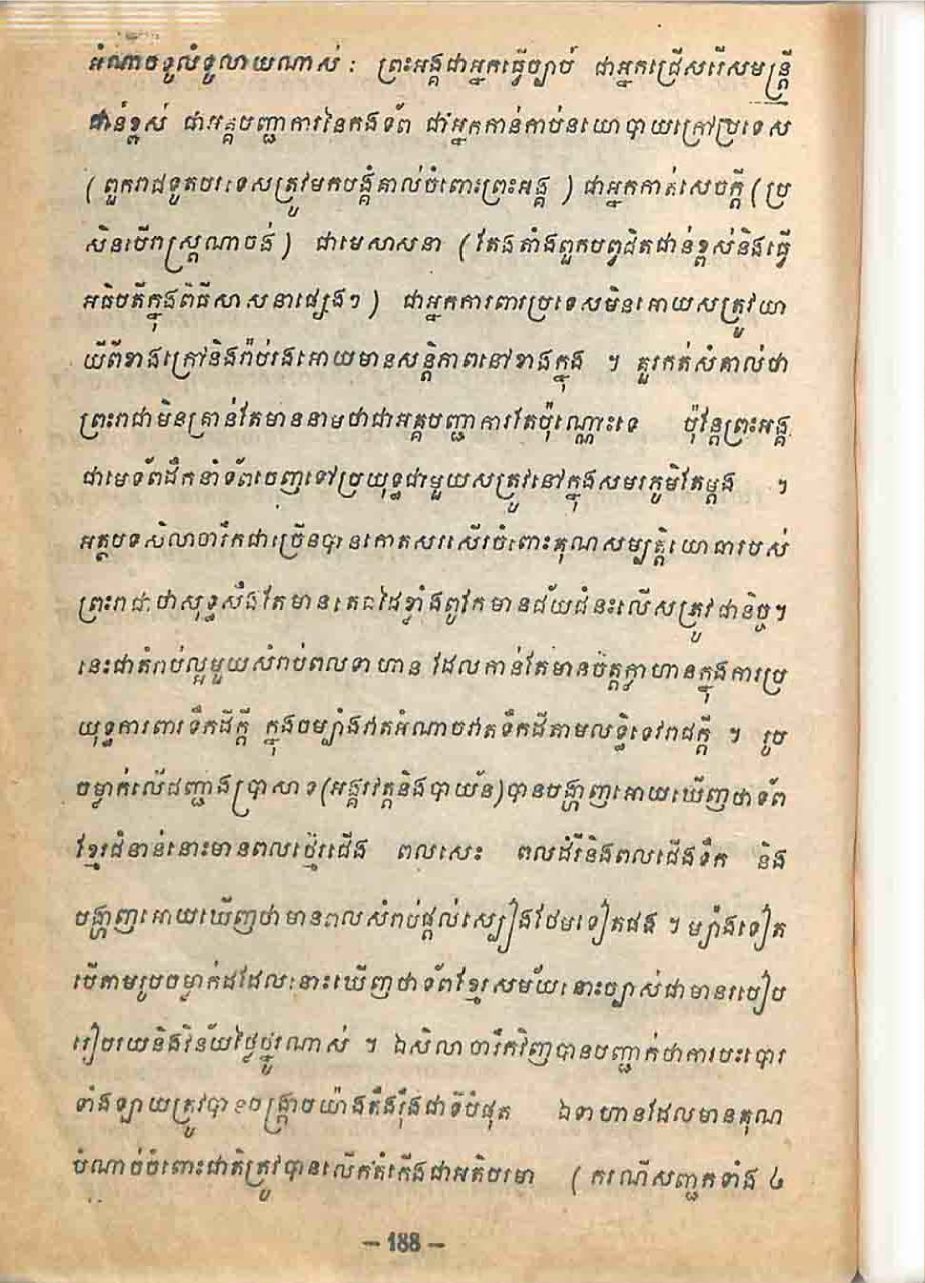 អំណាចទូលំទូលាយណាស់ : ព្រះអង្គជាអ្នកធ្វើច្បាប់ ជាអ្នកជ្រើសរើសមន្ត្រី
ជាន់ខ្ពស់ ជាអគ្គបញ្ជាការនៃកងទ័ព ជាអ្នកកាន់កាប់នយោបាយក្រៅប្រទេស
( ពួករាជទូតបរទេសត្រូវមកបង្គំគាល់ចំពោះព្រះអង្គ ) ជាអ្នកកាត់សេចក្តី ( ប្រ
សិនបើរាស្ត្រណាចង់ ) ជាមេសាសនា ( តែងតាំងពួកបព្វជិតជាន់ខ្ពស់និងធ្វើ
អធិបតីក្នុងពិធីសាសនាផ្សេងៗ ) ជាអ្នកការពារប្រទេសមិនអោយសត្រូវយា
យីពីខាងក្រៅនិងរ៉ាប់រងអោយមានសន្តិភាពនៅខាងក្នុង ។ គួរកត់សំគាល់ថា
ព្រះរាជាមិនគ្រាន់តែមាននាមថាជាអគ្គបញ្ជាការតែប៉ុណ្ណោះទេ ប៉ុន្តែព្រះអង្គ
ជាមេទ័ពដឹកនាំទ័ពចេញទៅប្រយុទ្ធជាមួយសត្រូវនៅក្នុងសមរភូមិតែម្តង ។
អត្ថបទសិលាចារឹកជាច្រើនបានកោតសរសើរចំពោះគុណសម្បត្តិយោធារបស់
ព្រះរាជាថាសុទ្ធសឹងតែមានតេជដៃខ្លាំងពូកែមានជ័យជំនះលើសត្រូវជានិច្ច។
នេះជាតំរាប់ល្អមួយសំរាប់ពលទាហាន ដែលកាន់តែមានចិត្តក្លាហានក្នុងការប្រ
យុទ្ធការពារទឹកដីក្តី ក្នុងចម្បាំងវាតអំណាចវាតទឹកដីតាមលទ្ធិទេវរាជក្តី ។ រូប
ចម្លាក់លើជញ្ជាំងប្រាសាទ(អង្គរវត្តនិងបាយ័ន)បានបង្ហាញអោយឃើញថាទ័ព
ខ្មែរជំនាន់នោះមានពលថ្មើរជើង ពលសេះ ពលដំរីនិងពលជើងទឹក និង
បង្ហាញអោយឃើញថាមានពលសំរាប់ផ្តល់ស្បៀងថែមទៀតផង ។ ម្យ៉ាងទៀត
បើតាមរូបចម្លាក់ដដែលនោះឃើញថាទ័ពខ្មែរសម័យនោះច្បាស់ជាមានរបៀប
រៀបរយនិងវិន័យថ្លៃថ្នូរណាស់ ។ ឯសិលាចារឹកវិញបានបញ្ជាក់ថាការបះបោរ
ទាំងឡាយត្រូវបានបង្ក្រាបយ៉ាងតឹងរ៉ឹងជាទីបំផុត ឯទាហានដែលមានគុណ
បំណាច់ចំពោះជាតិត្រូវបានលើកតំកើងជាអតិបរមា ( ករណីសញ្ជកទាំង ៤
– 188 –